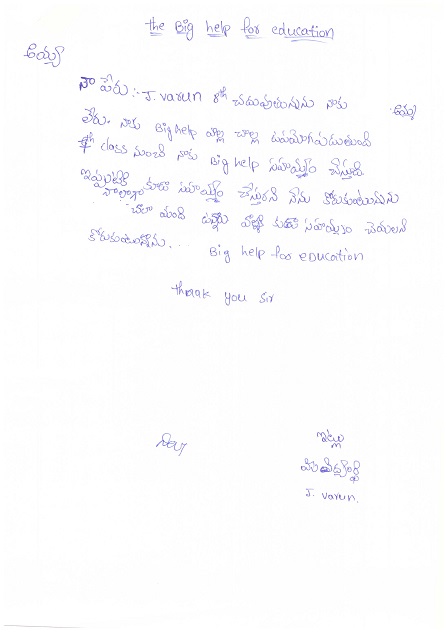 the Big help for education
అయ్యా
నా పేరు :- J. varun 8th చదువుతునును నాకు అమ్మ
లేరు. నాకు Big help వాల్ల చాల్ల ఉపయోగపడుతుంది
class నుంచి నాకు Big help సహాయ్యం చేస్తుంది
ఇప్పటికి కూడా సహాయ్యం చేస్తురని నేను కోరుకుంటునును
నాలాగా చాలా మంది ఉన్నారు వాళ్లకి కుడా సహాయ్యం చెయలని
కోరుకుంటున్నాను...
Big help for education
thnak you sir
ఇట్లు
మీ విద్యార్థి
J. varun.